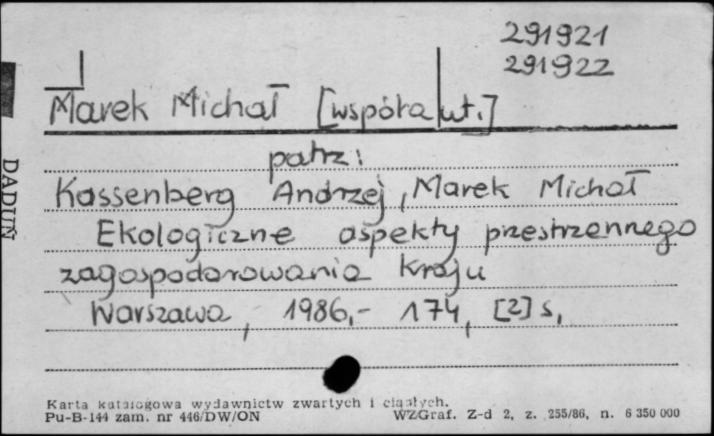 291921
291922
Marek Michał [współaut.]
patrz:
Kassenberg Andrzej, Marek Michał
Ekologiczne aspekty przestrzennego
zagospodarowania kraju
Warszawa, 1986,- 174, [2] s,
DADUŃ
Karta katalogowa wydawnictw zwartych i ciągłych.
Pu-B-144 zam. nr 446/DW/ON WZGraf. Z-d 2, z. 255/86, n. 6 350 000